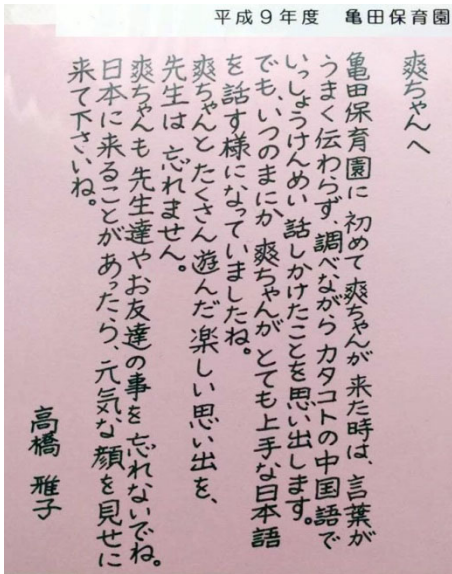 平成９年度　亀田保育園
爽ちゃんへ
亀田保育園に初めて爽ちゃんが来た時は、言葉が
うまく伝わらず、調べながらカタコトの中国語で
いっしょうけんめい話しかけたことを思い出します。
でも、いつのまにか爽ちゃんがとても上手な日本語
を話す様になっていましたね。
爽ちゃんとたくさん遊んだ楽しい思い出を、
先生は忘れません。
爽ちゃんも先生達やお友達の事を忘れないでね。
日本に来ることがあったら、元気な顔を見せに
来て下さいね。
高橋　雅子